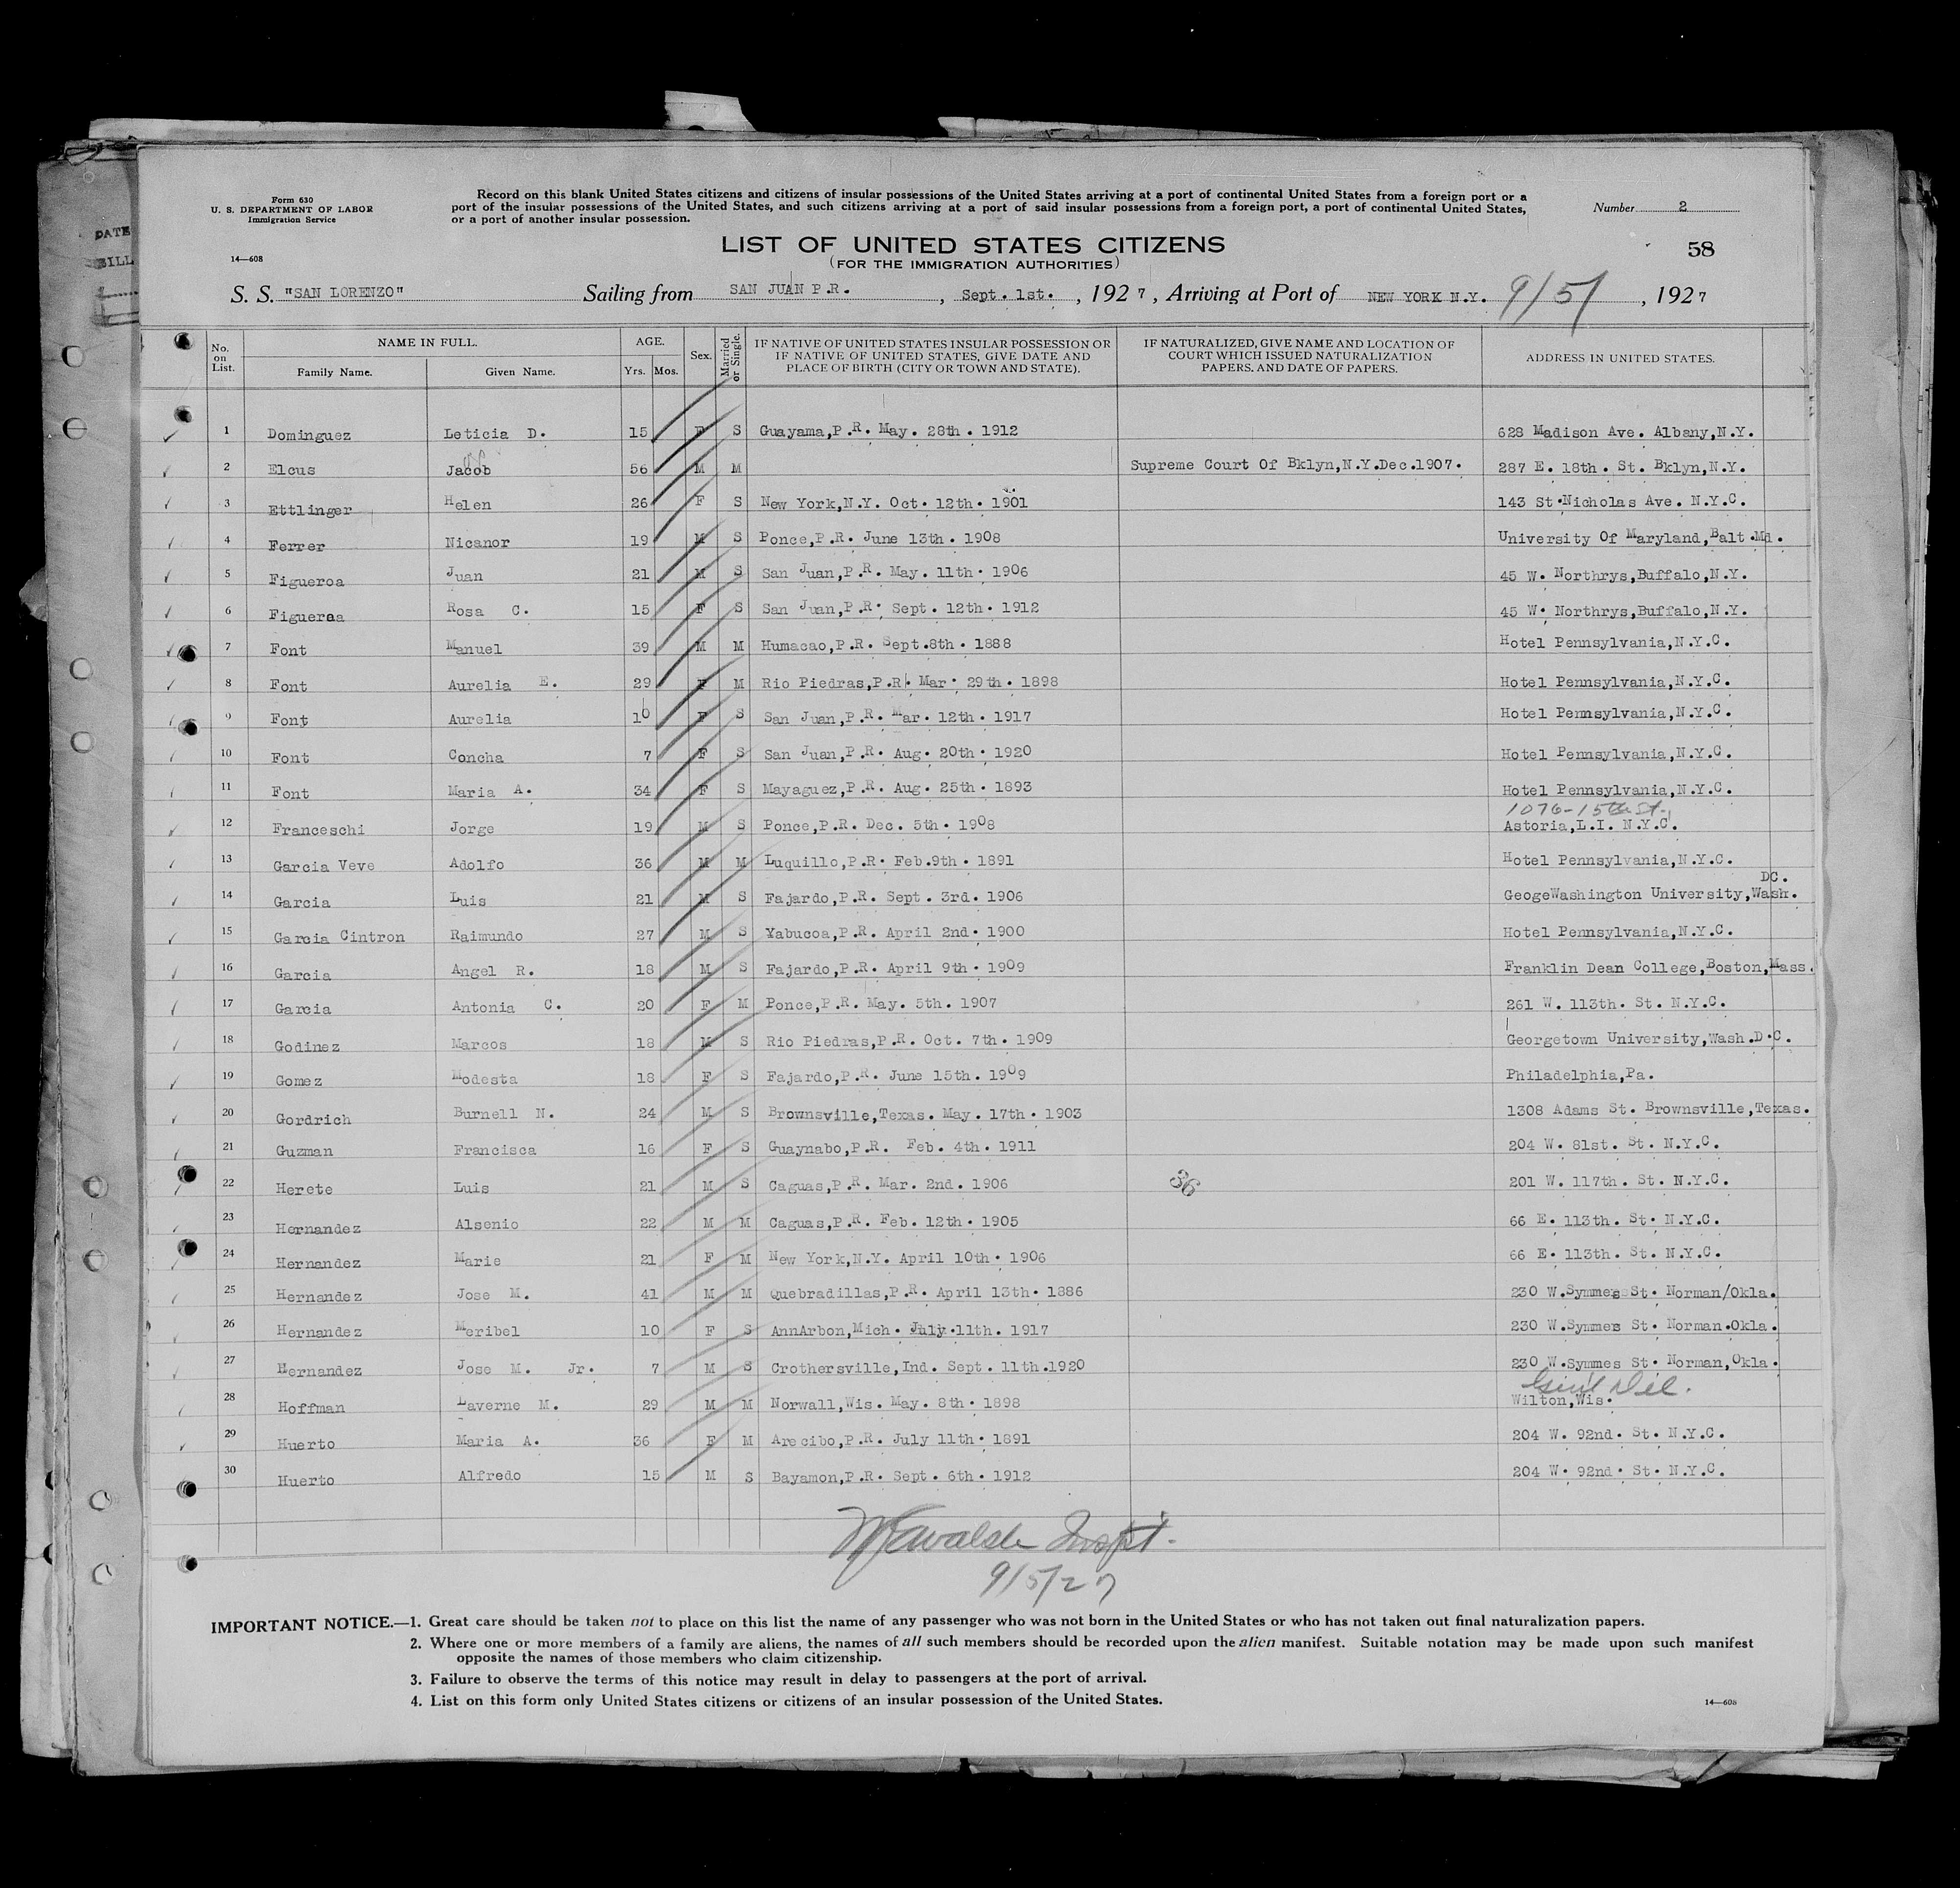 Form 630
U. S. DEPARTMENT OF LABOR
Immigration Service
14—608
Record on this blank United States citizens and citizens of insular possessions of the United States arriving at a port of continental United States from a foreign port or a
port of the insular possessions of the United States, and such citizens arriving at a port of said insular possessions from a foreign port, a port of continental United States,
or a port of another insular possession.
Number 2
LIST OF UNITED STATES CITIZENS
(FOR THE IMMIGRATION AUTHORITIES)
58
DATE
BILL
S. S. "SAN LORENZO" Sailing from SAN JUAN P.R. , Sept. 1st. , 1927 , Arriving at Port of NEW YORK N.Y. 9/5/ , 1927
No. on List. NAME IN FULL. Family Name. Given Name. AGE. Yrs. Mos. Sex. Married or Single. IF NATIVE OF UNITED STATES INSULAR POSSESSION OR IF NATIVE OF UNITED STATES, GIVE DATE AND PLACE OF BIRTH (CITY OR TOWN AND STATE). IF NATURALIZED, GIVE NAME AND LOCATION OF COURT WHICH ISSUED NATURALIZATION PAPERS. AND DATE OF PAPERS. ADDRESS IN UNITED STATES.
1 Dominguez Leticia D. 15 F S Guayama,P.R. May. 28th. 1912 628 Madison Ave. Albany,N.Y.
2 Elcus Jacob 56 M M Supreme Court Of Bklyn,N.Y.Dec.1907. 287 E. 18th. St. Bklyn,N.Y.
3 Ettlinger Helen 26 F S New York,N.Y. Oct. 12th. 1901 143 St.Nicholas Ave. N.Y.C.
4 Ferrer Nicanor 19 M S Ponce,P.R. June 13th. 1908 University Of Maryland,Balt.Md.
5 Figueroa Juan 21 M S San Juan,P.R. May. 11th. 1906 45 W. Northrys,Buffalo,N.Y.
6 Figueroa Rosa C. 15 F S San Juan,P.R. Sept. 12th. 1912 45 W. Northrys,Buffalo,N.Y.
7 Font Manuel 39 M M Humacao,P.R. Sept.8th. 1888 Hotel Pennsylvania,N.Y.C.
8 Font Aurelia E. 29 F M Rio Piedras,P.R. Mar. 29th. 1898 Hotel Pennsylvania,N.Y.C.
9 Font Aurelia 10 F S San Juan,P.R. Mar. 12th. 1917 Hotel Pennsylvania,N.Y.C.
10 Font Concha 7 F S San Juan,P.R. Aug. 20th. 1920 Hotel Pennsylvania,N.Y.C.
11 Font Maria A. 34 F S Mayaguez,P.R. Aug. 25th. 1893 Hotel Pennsylvania,N.Y.C.
1076-15th St.
12 Franceschi Jorge 19 M S Ponce,P.R. Dec. 5th. 1908 Astoria,L.I. N.Y.C.
13 Garcia Veve Adolfo 36 M M Luquillo,P.R. Feb.9th. 1891 Hotel Pennsylvania,N.Y.C.
DC.
14 Garcia Luis 21 M S Fajardo,P.R. Sept. 3rd. 1906 GeogeWashington University,Wash.
15 Garcia Cintron Raimundo 27 M S Yabucoa,P.R. April 2nd. 1900 Hotel Pennsylvania,N.Y.C.
16 Garcia Angel R. 18 M S Fajardo,P.R. April 9th. 1909 Franklin Dean College,Boston,Mass.
17 Garcia Antonia C. 20 F M Ponce,P.R. May. 5th. 1907 261 W. 113th. St. N.Y.C.
18 Godinez Marcos 18 M S Rio Piedras,P.R. Oct. 7th. 1909 Georgetown University,Wash.D.C.
19 Gomez Modesta 18 F S Fajardo,P.R. June 15th. 1909 Philadelphia,Pa.
20 Gordrich Burnell N. 24 M S Brownsville,Texas. May. 17th. 1903 1308 Adams St. Brownsville,Texas.
21 Guzman Francisca 16 F S Guaynabo,P.R. Feb. 4th. 1911 204 W. 81st. St. N.Y.C.
22 Herete Luis 21 M S Caguas,P.R. Mar. 2nd. 1906 36 201 W. 117th. St. N.Y.C.
23 Hernandez Alsenio 22 M M Caguas,P.R. Feb. 12th. 1905 66 E. 113th. St. N.Y.C.
24 Hernandez Marie 21 F M New York,N.Y. April 10th. 1906 66 E. 113th. St. N.Y.C.
25 Hernandez Jose M. 41 M M Quebradillas,P.R. April 13th. 1886 230 W.Symmes St. Norman/Okla.
26 Hernandez Meribel 10 F S AnnArbon,Mich. July.11th. 1917 230 W.Symmes St. Norman.Okla.
27 Hernandez Jose M. Jr. 7 M S Crothersville,Ind. Sept. 11th.1920 230 W.Symmes St. Norman,Okla.
Genl Del.
28 Hoffman Laverne M. 29 M M Norwall,Wis. May. 8th. 1898 Wilton,Wis.
29 Huerto Maria A. 36 F M Arecibo,P.R. July 11th. 1891 204 W. 92nd. St. N.Y.C.
30 Huerto Alfredo 15 M S Bayamon,P.R. Sept. 6th. 1912 204 W. 92nd. St. N.Y.C.
Inspt.
9/5/27
IMPORTANT NOTICE.—1. Great care should be taken not to place on this list the name of any passenger who was not born in the United States or who has not taken out final naturalization papers.
2. Where one or more members of a family are aliens, the names of all such members should be recorded upon the alien manifest. Suitable notation may be made upon such manifest
opposite the names of those members who claim citizenship.
3. Failure to observe the terms of this notice may result in delay to passengers at the port of arrival.
4. List on this form only United States citizens or citizens of an insular possession of the United States.
14—608